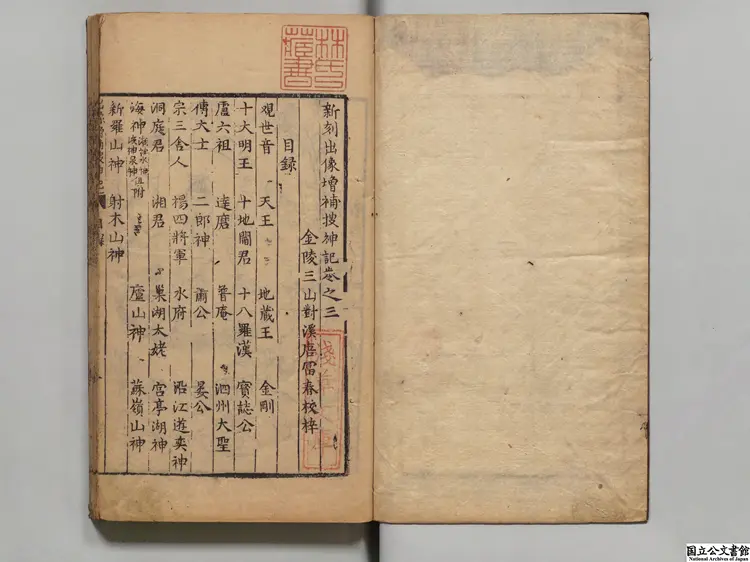 新刻出像增補搜神記卷之三
金陵三山對溪唐富春校梓
目錄
觀世音 天王 地藏王 金剛
十大明王 十地閻君 十八羅漢 寶誌公
盧六祖 達磨 普庵 泗州大聖
傅大士 二郎神 蕭公 晏公
宗三舍人 楊四將軍 水府 沿江遊奕神
洞庭君 湘君 巢湖太姥 宮亭湖神
海神 附
新羅山神 射木山神 廬山神 蘇嶺山神
林氏藏書
国立公文書館
National Archives of Japan